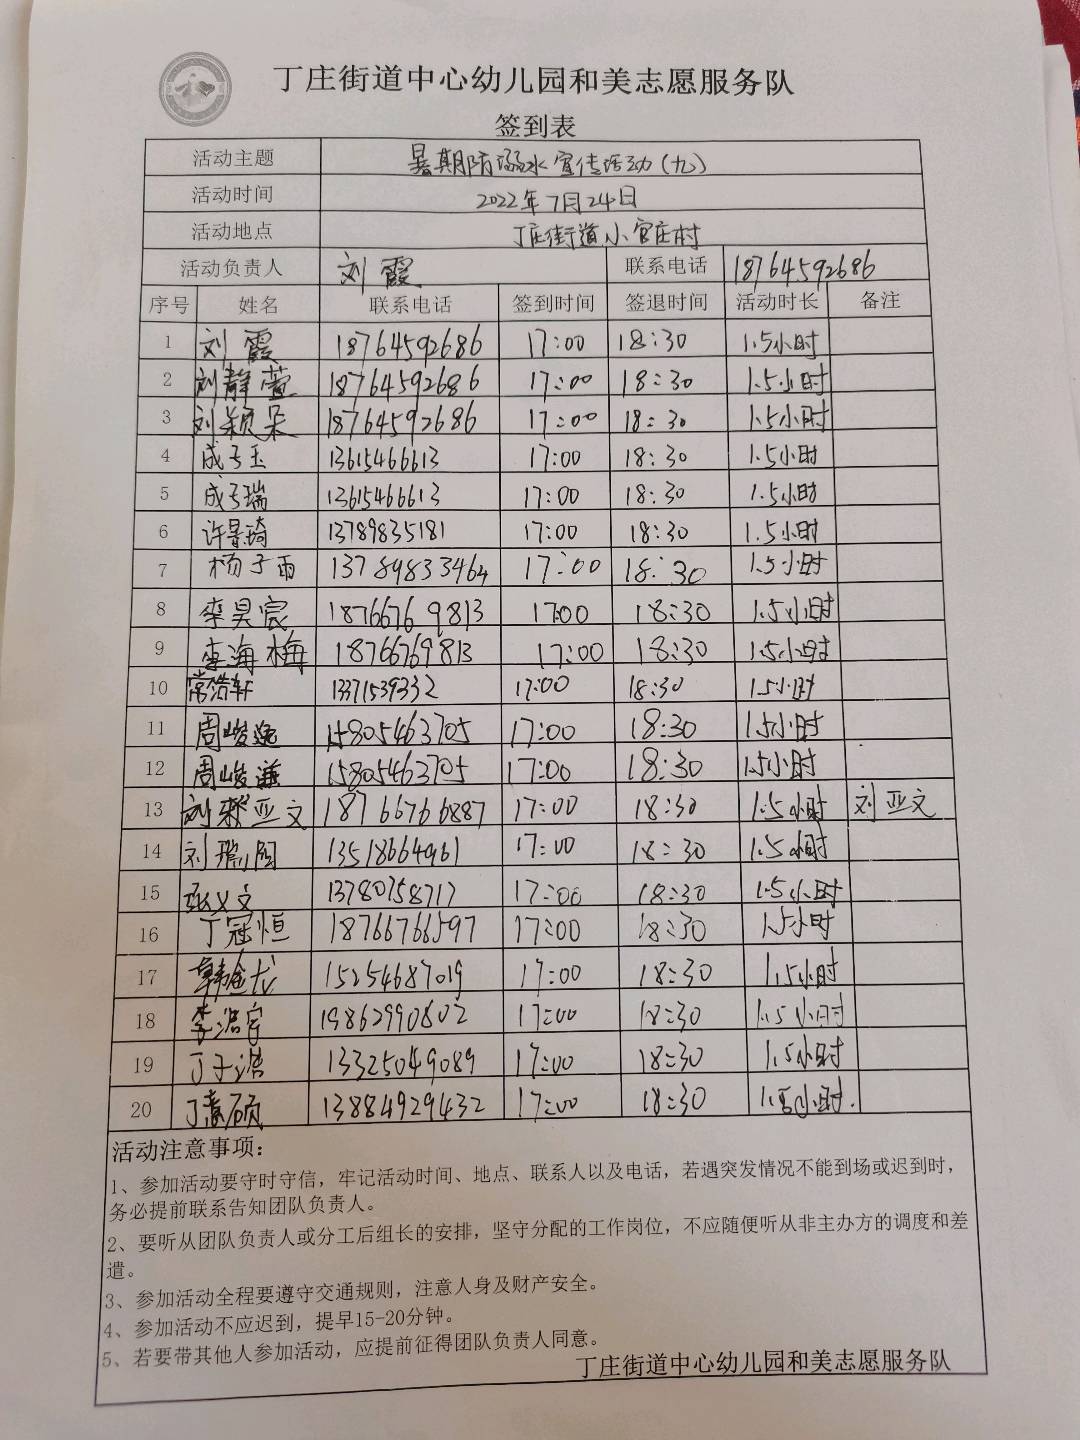 丁庄街道中心幼儿园和美志愿服务队
签到表
活动主题 暑期防溺水宣传活动(九)
活动时间 2022年7月24日
活动地点 丁庄街道小官庄村
活动负责人 刘霞 联系电话 18764592686
序号 姓名 联系电话 签到时间 签退时间 活动时长 备注
1 刘霞 18764592686 17:00 18:30 1.5小时
2 刘静萱 18764592686 17:00 18:30 1.5小时
3 刘颖朵 18764592686 17:00 18:30 1.5小时
4 成子玉 13615466613 17:00 18:30 1.5小时
5 成子瑞 13615466613 17:00 18:30 1.5小时
6 许景琦 13789835181 17:00 18:30 1.5小时
7 杨子雨 13789833464 17:00 18:30 1.5小时
8 李昊宸 18766769813 17:00 18:30 1.5小时
9 李海梅 18766769813 17:00 18:30 1.5小时
10 常浩轩 13371539332 17:00 18:30 1.5小时
11 周峻逸 15805463705 17:00 18:30 1.5小时
12 周峻谦 15805463705 17:00 18:30 1.5小时
13 刘 亚文 18766766887 17:00 18:30 1.5小时 刘亚文
14 刘瑞阅 13518664961 17:00 18:30 1.5小时
15 张文文 13780758717 17:00 18:30 1.5小时
16 丁冠恒 18766766597 17:00 18:30 1.5小时
17 韩金龙 15254687019 17:00 18:30 1.5小时
18 李浩宇 19862990802 17:00 18:30 1.5小时
19 丁子浩 13325049089 17:00 18:30 1.5小时
20 丁 硕 13884929432 17:00 18:30 1.5小时.
活动注意事项:
1、参加活动要守时守信，牢记活动时间、地点、联系人以及电话，若遇突发情况不能到场或迟到时，
务必提前联系告知团队负责人。
2、要听从团队负责人或分工后组长的安排，坚守分配的工作岗位，不应随便听从非主办方的调度和差
遣。
3、参加活动全程要遵守交通规则，注意人身及财产安全。
4、参加活动不应迟到，提早15-20分钟。
5、若要带其他人参加活动，应提前征得团队负责人同意。
丁庄街道中心幼儿园和美志愿服务队